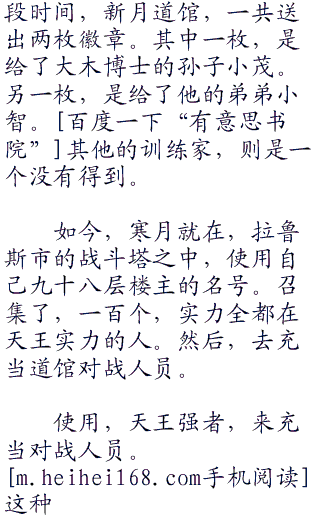 段时间，新月道馆，一共送
出两枚徽章。其中一枚，是
给了大木博士的孙子小茂。
另一枚，是给了他的弟弟小
智。[百度一下“有意思书
院”]其他的训练家，则是一
个没有得到。
如今，寒月就在，拉鲁
斯市的战斗塔之中，使用自
己九十八层楼主的名号。召
集了，一百个，实力全都在
天王实力的人。然后，去充
当道馆对战人员。
使用，天王强者，来充
当对战人员。
[m.heihei168.com手机阅读]
这种